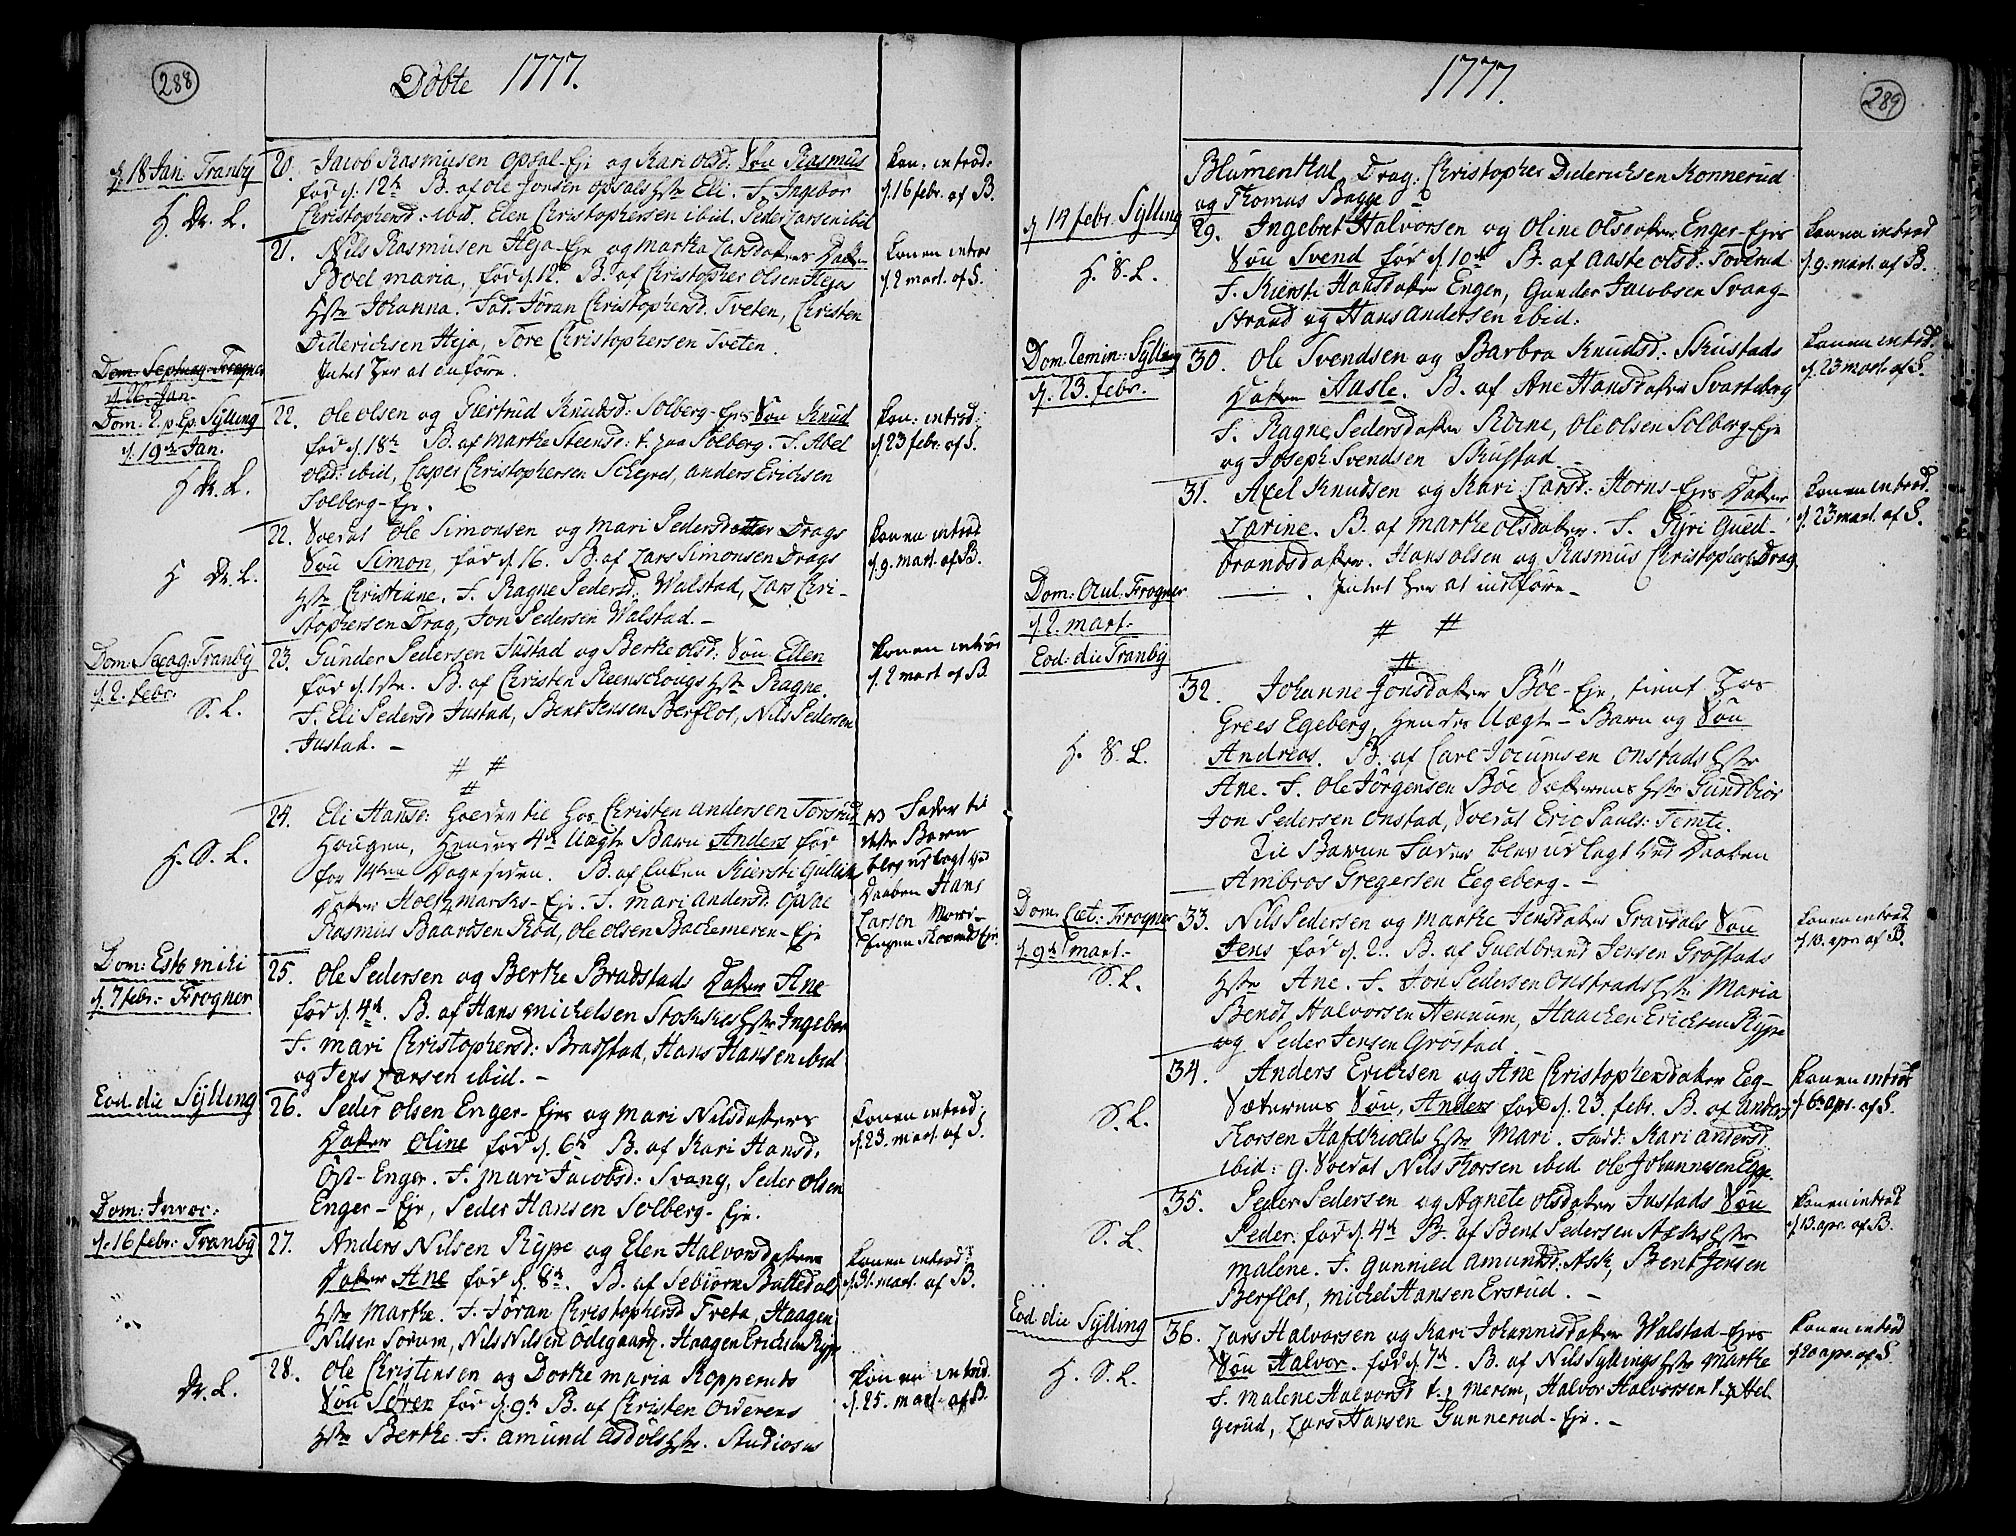 288
Döbte 1777.
d. 18 Jan Tranby
H. Dr. L.
20. Jacob Rasmusen Opsal-Eje og Kari Olsd: Søn Rasmus
fød d. 12te B. af Ole Jonsen Opsals Hstr Eli. F. Ingebor
Christophersd: ibid. Elen Christophersen ibid. Peder Larsen ibid
Kon: introd:
d. 16 febr. af B.
21. Nils Rasmusen Heja-Eje og Martha Larsdaters Datter
Boel Maria, fød d. 12te B. af Christopher Olsen Hejas
Hstr Johanna. Fad. Jøran Christophersd. Tveten, Christen
Diderichsen Heja, Tore Christophersen Tveten.
Konen introd
d. 2 mart. af S.
Dom. Septuag. Frogner
d. 26. Jan.
Intet her at enføre.
Dom. 2. p. Ep. Sylling
d. 19de Jan.
H Dr. L.
22. Ole Olsen og Giertrud Knudsd: Solberg-Ejes Søn Knud
fød d. 18de B. af Marthe Steensd: t. paa Solberg. F. Abel
Olsd: ibid, Casper Christophersen Schejrel, Anders Erichsen
Solberg-Eje.
Kon: introd:
d. 23 febr. af S.
H Dr. L.
22. Soldat Ole Simonsen og Mari Pedersdatter Drags
Søn Simon, fød d. 16. B. af Lars Simonsen Drags
Hstr Christiane. F. Ragne Pedersd: Walstad, Lars Chri-
stophersen Drag, Jon Pedersen Walstad. -
Konen introd
d. 9. mart. af B.
Dom. Sexag. Tranby
d. 2. febr.
S. L.
23. Gunder Pedersen Justad og Berthe Olsd: Søn Ellen
fød d. 1ste. B. af Christen Reenschougs Hstr Ragne.
F. Eli Pedersd Justad, Bent Jensen Berflot, Nils Pedersen
Justad. -
Konen introd
d. 2 mart af B.
H. S. L.
24. Eli Hansd: hos Christen Andersen Torsrud
Haugen, hendes 4de Uægte Barn Anders fød
for 14ten Dage siden. B. af Enken Kiersti Gullichs
Dater Holtzmarchs-Eje. F. Mari Andersd: Opsal
Rasmus Baardsen Rød, Ole Olsen Bachemeren-Eje
Fader til
dette Barn
blev udlagt ved
Daaben Hans
Larsen
Dom: Esto mihi
d. 7 febr. Frogner
25. Ole Pedersen og Berthe Bradstads Dater Ane
fød d. 4de. B. af Hans Michelsen Stokkes Hstr Ingebor
F. Mari Christophersd: Bradstad, Hans Hansen ibid
og Jens Larsen ibid. -
Eod. die Sylling
26. Peder Olsen Enger-Ejes og Mari Nilsdaters
Dater Oline fød d. 6te B. af Kari Hansd.
Øst-Enger. F. Mari Jacobsd: Svang, Peder Olsen
Enger-Eje, Peder Hansen Solberg-Eje.
Konen introd.
d. 23. mart. af S.
Dom: Invoc:
d. 16 febr: Tranby
27. Anders Nilsen Rype og Elen Halvorsdaters
Dater Ane fød d. 8de. B. af Sebiørn Battedals
Hstr Marthe. F. Jøran Christophersd Tveta, Haagen
Nilsen Sørum, Nils Nilsen Ødegaard. Haagen Erichsen Rype
Konen introd:
d. 31. mart. af B.
Dr. L.
28. Ole Christensen og Dorthe Maria Kopperuds
Søn Søren fød d. 9de B. af Christen Oderens
Hstr Berthe. F. Amund Asdøls Hstr. Studiosus
Konen introd.
d. 25. mart. af B.
289
1777.
Blumenthal, Drag. Christopher Diderichsen Konnerud
og Thomas Bagge
d. 14 febr. Sylling
H. S. L.
29. Ingebret Halvorsen og Oline Olsdater Enger-Ejes
Søn Svend fød d. 10de B. af Aaste Olsd: Toverud
F. Kiersti Hansdater Enger, Gunder Jacobsen Svang-
Strand og Hans Andersen ibid:
Konen introd
d. 9. mart. af B.
Dom. Remin: Sylling
d. 23. febr.
30. Ole Svendsen og Barbra Knudsd: Skustads
Dater Aasle. B. af Ane Hansdater Svarteberg
F. Ragne Pedersdater Skrine, Ole Olsen Solberg-Eje
og Joseph Svendsen Skustad
Konen introd.
d. 23 mart. af S.
31. Axel Knudsen og Kari Larsd: Horns-Ejes Dater
Larine. B. af Marthe Olsdater. F. Gyri Gued
brandsdater. Hans Olsen og Rasmus Christophers. Drag
Konen introd.
d. 23 mart. af S.
Dom: Ocul: Frogner
d. 2. mart.
Intet her at indføre -
Eod: die Tranby
H. S. L.
32. Johanne Jonsdater Bøe-Eje, tient hos
Grees Egeberg, hendes Uægte-Barn og Søn
Andreas. B. af Carl Jocumsen Onstads Hstr
Ane. F. Ole Jørgensen Bøe Sæterens Hstr Gundbiør
Jon Pedersen Onstad, Soldat Eric Pauls: Temte.
Til Barnefader blev udlagt ved Daaben
Ambros Gregersen Eegeberg. -
Dom: Læt: Frogner
d. 9de mart.
S. L.
33. Nils Pedersen og Marthe Jensdater Gravdals Søn
Jens fød d. 2. B. af Guedbrand Jensen Grøstads
Hstr Ane. F. Jon Pedersen Onstrads Hstr Maria
Bendt Halvorsen Hennum, Haachen Erichsen Rype
og Peder Jensen Grøstad
Konen introd
d. 13. apr. af B.
S. L.
34. Anders Erichsen og Ane Christophersdater Eeg-
Sæterens Søn, Anders fød d. 23. febr. B. af Anders
Thorsen Hafskiolds Hstr Mari. Fadd: Kari Andersd
ibid: g. Soldat Nils Thorsen ibid Ole Johannesen Egge.
Konen introd
d. 6 apr. af S.
S. L.
35. Peder Pedersen og Agnete Olsdater Justads Søn
Peder. fød d. 4de B. af Bent Pedersen Asks Hstr
Malene. F. Gunnied Amundsd: Ask, Bent Jensen
Berflot, Michel Hansen Ersrud. -
Konen introd
d. 13. apr. af B.
Eod. die Sylling
H. S. L.
36. Lars Halvorsen og Kari Johannisdater Walstad-Ejes
Søn Halvor. fød d. 7de. B. af Nils Syllings Hstr Marthe
F. Malene Halvorsd t. p Merem, Halvor Halvorsen t. p Hel
gerud, Lars Hansen Gunnerud-Eje. -
Konen introd
d. 20 apr. af S.